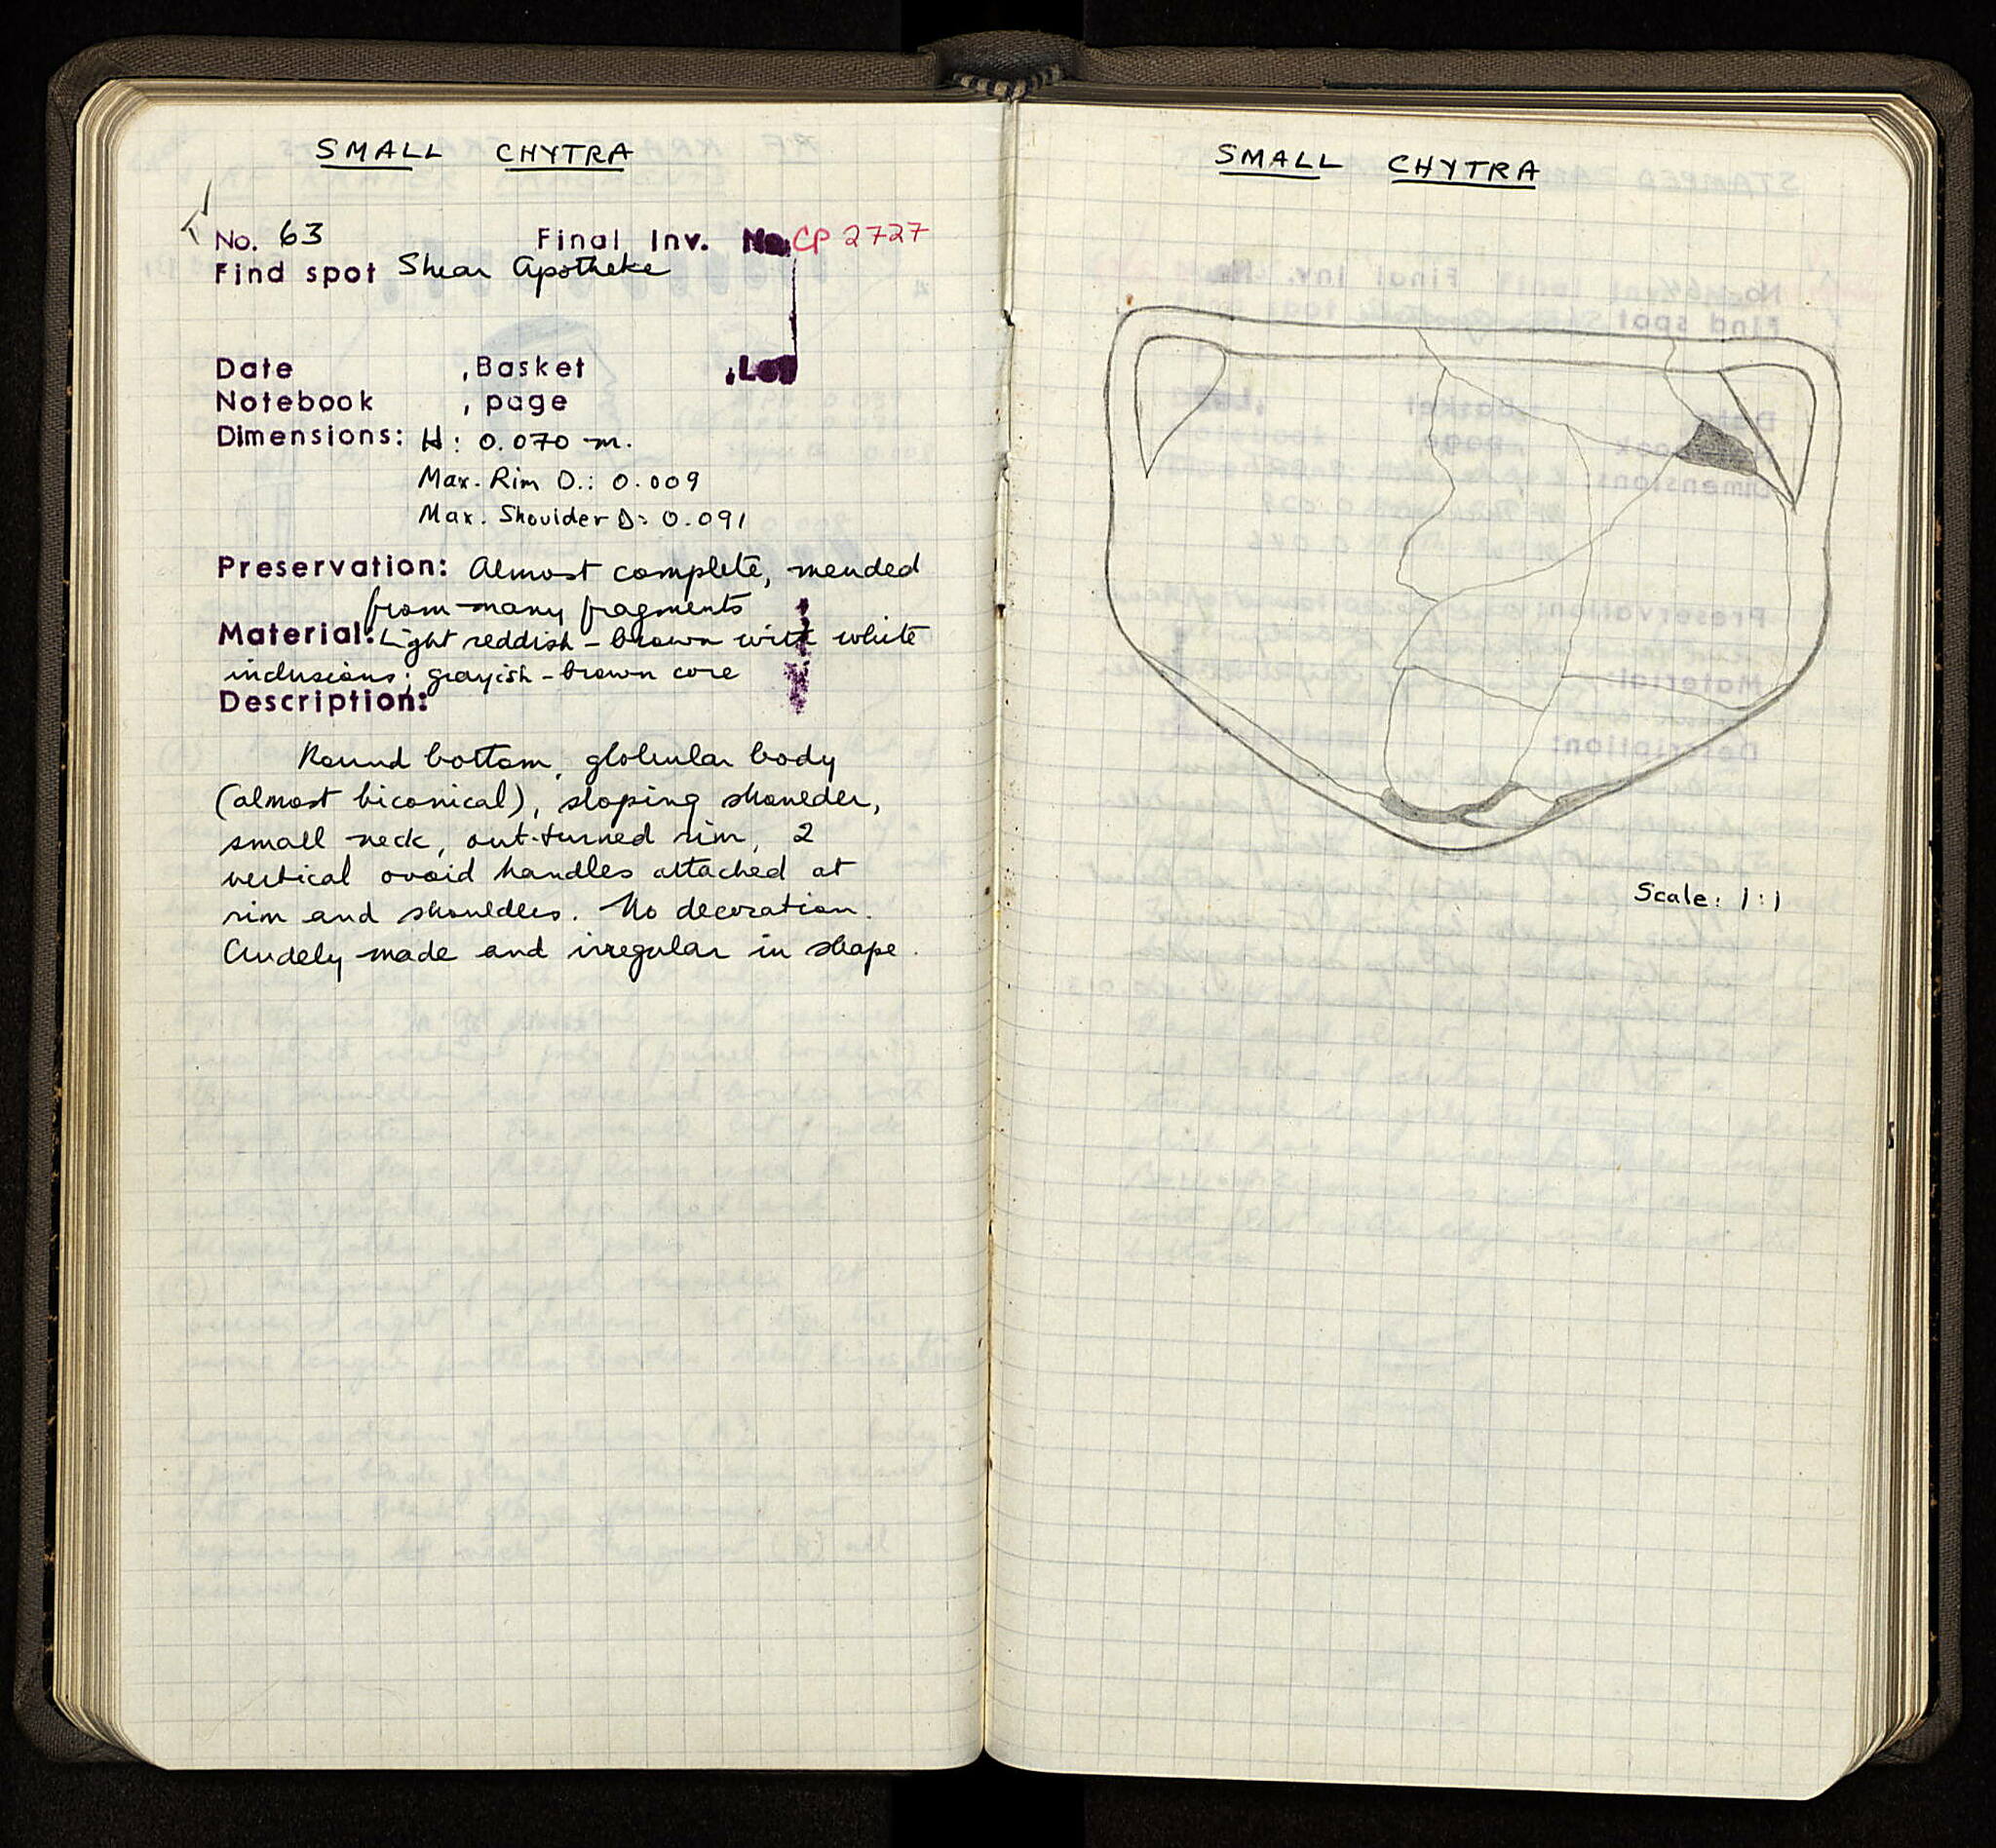 SMALL CHYTRA
No. 63 Final Inv. No. CP 2727
Find spot Shear Apotheke
Date , Basket , Lot
Notebook , page
Dimensions: H: 0.070 m.
Max. Rim D.: 0.009
Max. Shoulder D: 0.091
Preservation: Almost complete, mended
from many fragments
Material: Light reddish-brown with white
inclusions; grayish-brown core
Description:
Round bottom, globular body
(almost biconical), sloping shoulder,
small neck, out-turned rim, 2
vertical ovoid handles attached at
rim and shoulders. No decoration.
Crudely made and irregular in shape.
SMALL CHYTRA
Scale: 1:1